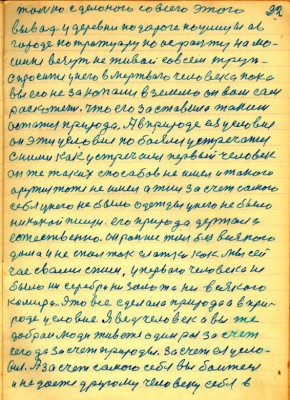 22
только сделаного со всего этого
вывад. у деревни по дороге по улице а в
городе по тратуару но асфарту на ма-
шине везут не живой совсем труп
спросити у него в мертвого человека пока
вы его не закопали в землю он вам сам
раскажет. Что его заставило таким
остатся природа. А в природе ее условия
он эти условия по боялся встречатся
с ними как устречался первый человек
он же таких способов не имел и такого
другии тоже не имел а жил за счет самого
себя у него не было одежды у него не было
никакой пищи. его природа держала
естественно. он раньше жил без всякого
дома и не спал так как мы сей
час с вами спим, у первого человека не
было ни серебра ни золота ни всякого
комира. Это все сделала природа а в при-
роде условие. Я ведь человек а вы же
добрыи люди живете один раз за счет
сего да за счет природы. за счет ее усло-
вия. А за счет самого себя вы боитесь
и не даете другому человеку себя в